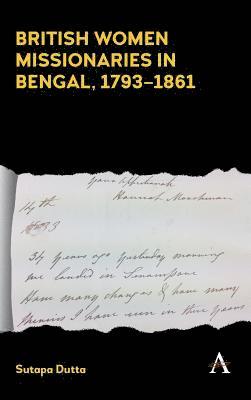 BRITISH WOMEN
MISSIONARIES IN
BENGAL, 1793–1861
Hannah Marshman
14th
34 years ago yesterday morning
we landed in Serampore
How many changes & how many
I have seen in these years
Sutapa Dutta
A